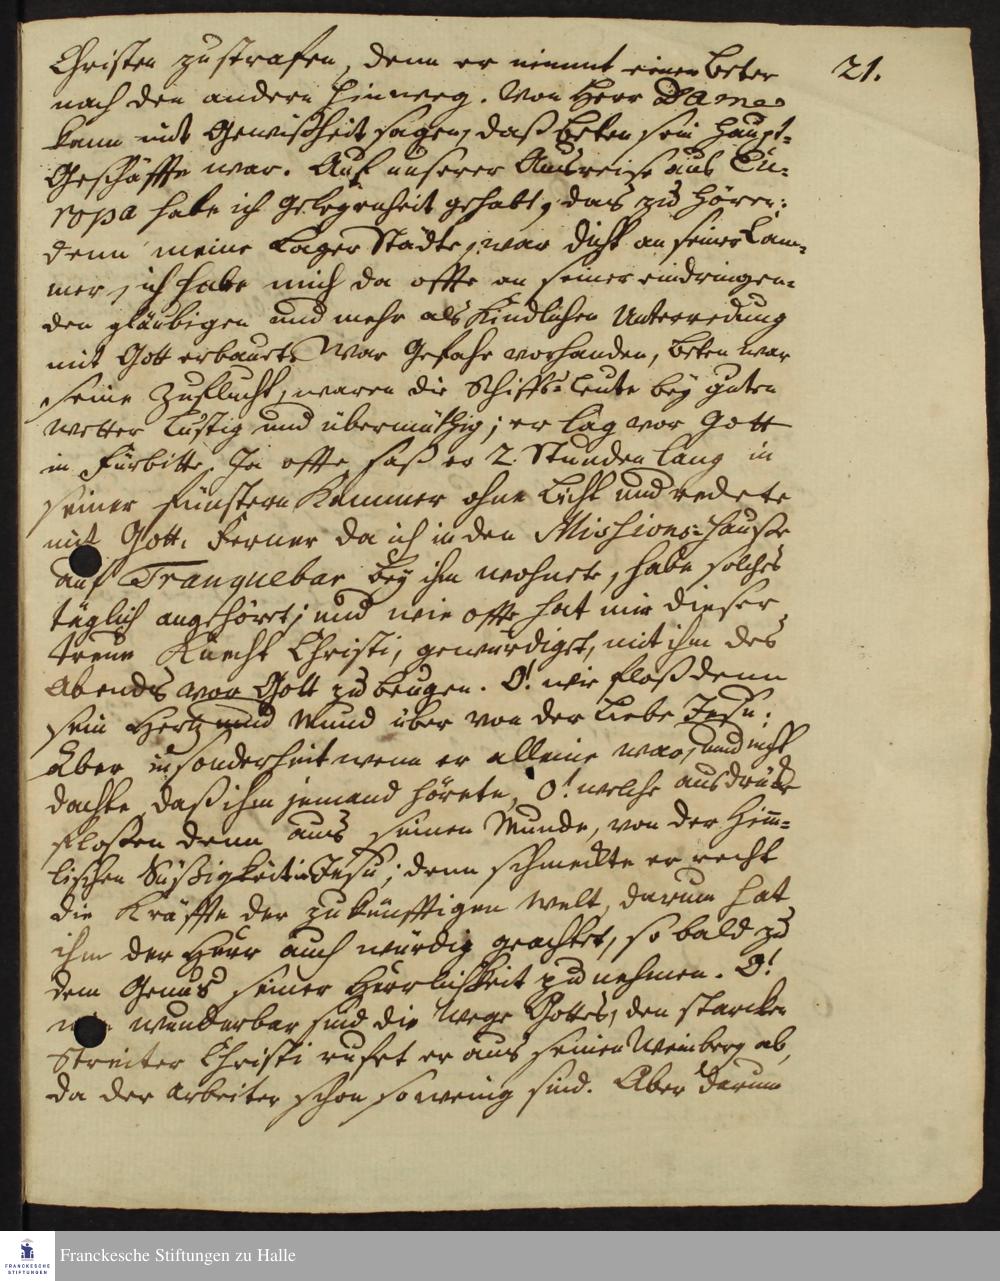 21.
Christen zu strafen, denn er nimmt einen beter
nach den andern hinweg. Von Herr Dames
kann mit Gewißheit sagen, daß beten sein Haupt-
Geschäffte war. Auf unserer Ausreise aus Eu-
ropa habe ich gelegenheit gehabt, das zu hören:
denn meine Lager Städte, war dicht an seiner Cam-
mer, ich habe mich da offte an seiner eindringen-
den gläubigen und mehr als Kindlichen Unterredung
mit Gott erbauet. War Gefahr vorhanden, beten war
seine Zuflucht, waren die Schiffs-Leute bey guten
Wetter Lustig und übermüthig; er lag vor Gott
in Fürbitte. Ja offte saß er 2. Stunden lang in
seiner finstern Kammer ohne Licht und redete
mit Gott. Ferner da ich in den Missions-Hauße
auf Tranquebar bey ihm wohnete, habe solches
täglich angehöret; und wie offte hat mir dieser
treue Knecht Christi, gewürdiget, mit ihm des
Abends vor Gott zu beugen. O! wie floß denn
sein Hertz und Mund über von der Liebe Jesu:
Aber insonderheit wenn er alleine war, und nicht
dachte, daß ihm jemand hörete, O! welche ausdrücke
flossen denn aus seinen Munde, von der Him-
lischen Süßigkeit in Jesu; denn schmeckte er recht
die Kräffte der zukünfftigen Welt, darum hat
ihm der Herr auch würdig geachtet, so bald zu
dem Genus seiner Herrlichkeit zu nehmen. O!
wie wunderbar sind die Wege Gottes, den starcken
Streiter Christi rufet er aus seinen Weinberg ab,
da der Arbeiter schon so wenig sind. Aber darum
FRANCKESCHE
STIFTUNGEN
Franckesche Stiftungen zu Halle